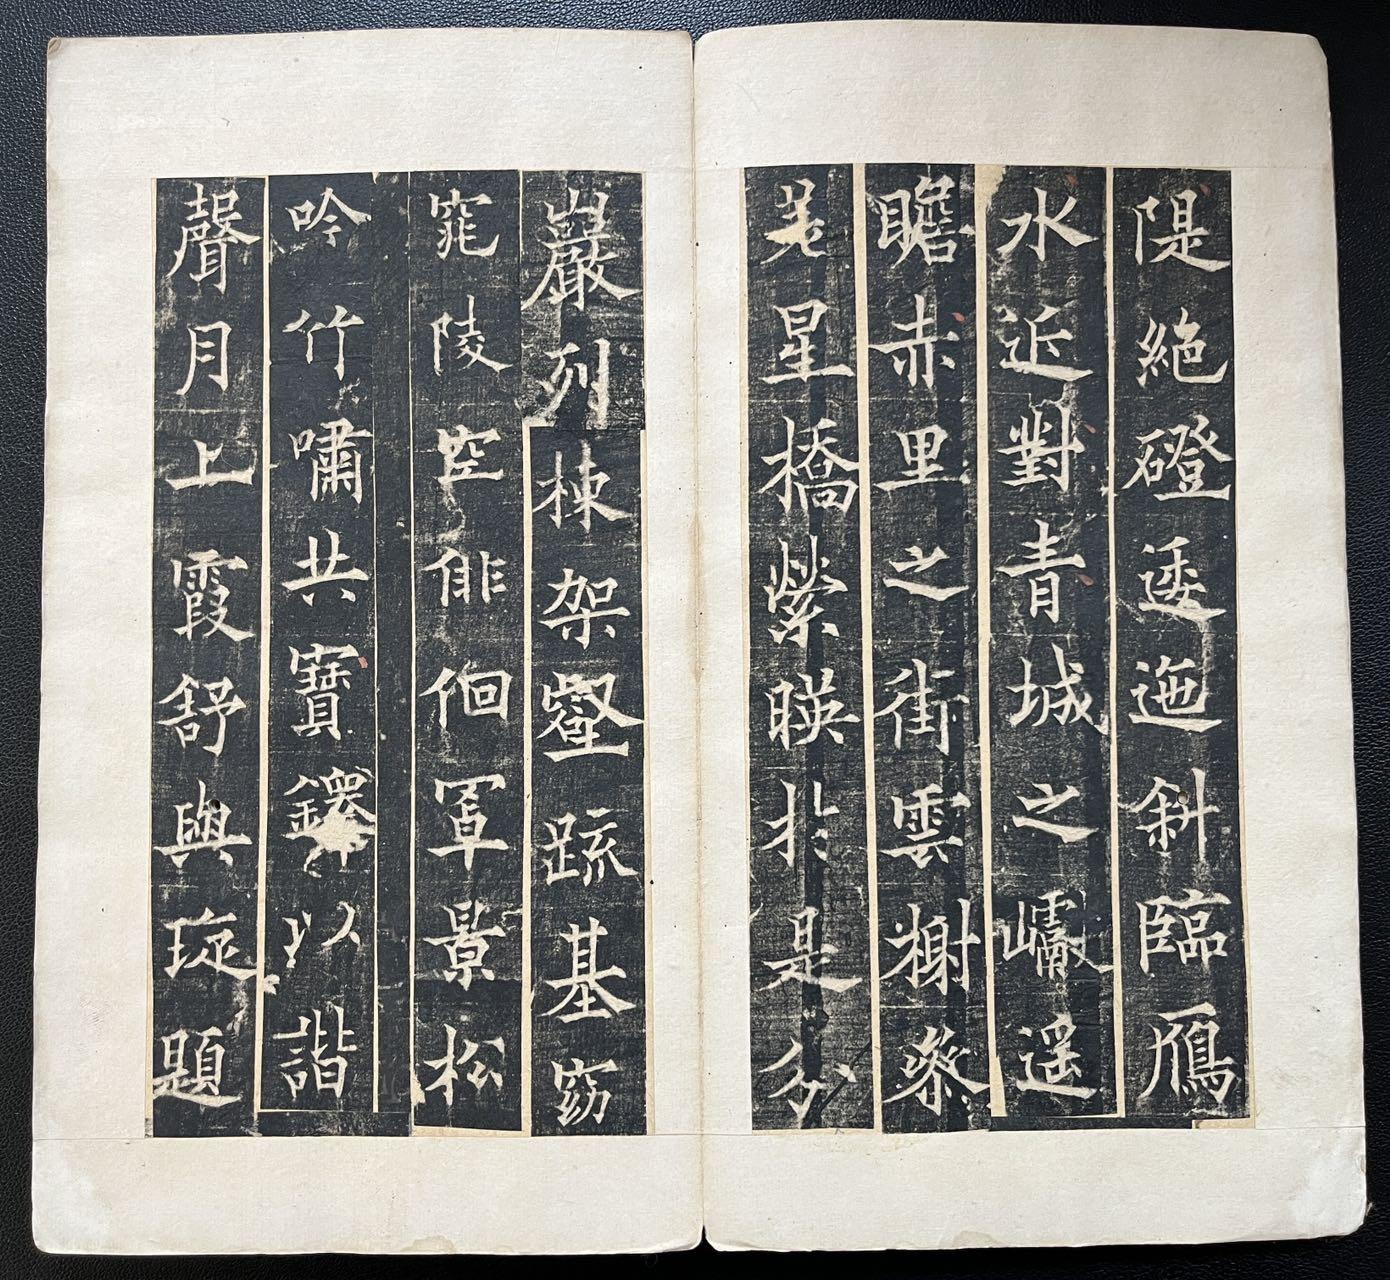 隄絶磴逶迤斜臨鴈
水近對青城之巘遥
瞻赤里之街雲榭叅
差星橋縈暎於是分
巖列棟架壑疏基窈
窕陵空俳佪罩景松
吟竹嘯共寳鐸以諧
聲月上霞舒與琁題